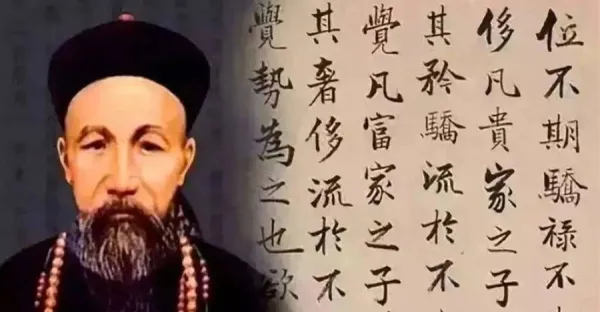 位不期驕禄不
侈凡貴家之子
其矜驕流於不
覺凡富家之子
其奢侈流於不
覺勢為之也欲